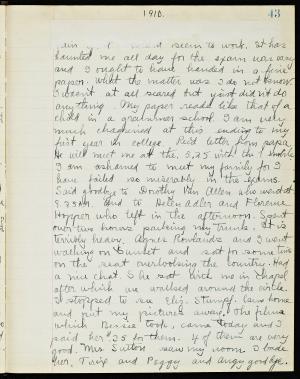 1910. 43
seem to work. It has
haunted me all day for the exam was easy
and I ought to have handed in a fine
paper. What the matter was I do not know.
I wasn't at all scared but just did not do
anything. My paper reads like that of a
child in a grammar school. I am very
much chagrined at this ending to my
first year in college. Rec'd letter from papa.
He will meet me at the 5.25 with the
I am ashamed to meet my family for I
have failed so miserably in the exams.
Said goodbye to Dorothy Van Allen who went at
and to Helen Adler and Florence
Hopper who left in the afternoon. Spent
over two hours packing my trunk. It is
terribly heavy. Agnes Rowlands and I went
walking on Sunset and sat for some time
on the seat overlooking the country. Had
a nice chat. She sat with me in chapel
after which we walked around the circle.
I stopped to see Eliz. Stumpf. Came home
and put my pictures away. The films
which Bessie took, came today and I
paid her for them. 4 of them are very
good. Mrs. Sutton saw my room. I bade
her, Trix and Peggy and Angy goodbye.